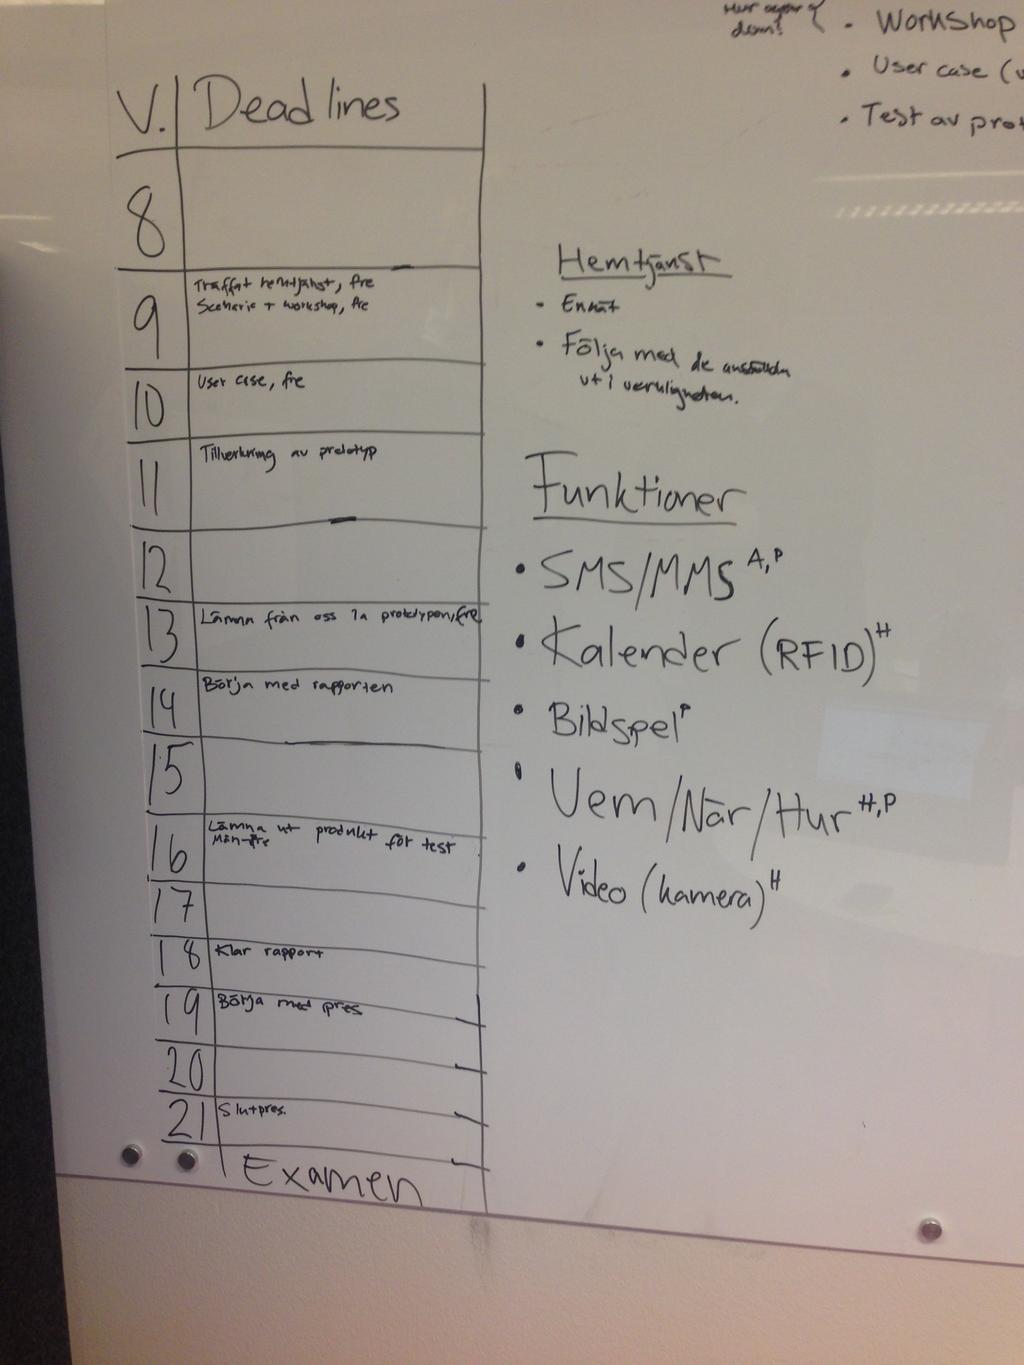 Workshop
User case (
Test av prot
V. Deadlines
8
9 Träffat hemtjänst, fre
Scenario + workshop, fre
10 User case, fre
11 Tillverkning av prototyp
12
13 Lämna från oss 1a prototypen, fre
14 Börja med rapporten
15
16 Lämna ut produkt för test
Mån-fre
17
18 Klar rapport
19 Börja med pres
20
21 Slutpres.
Examen
Hemtjänst
Följa med de anställda
ut i verkligheten.
Funktioner
SMS/MMS A,P
Kalender (RFID) H
Bildspel P
Vem/När/Hur H,P
Video (kamera) H